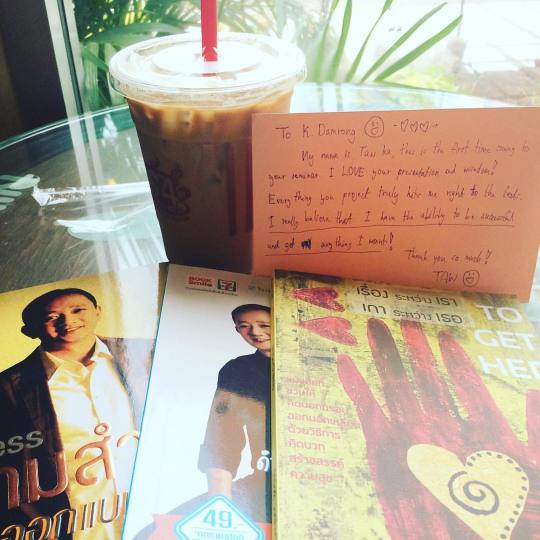 To K. Damrong
My name is Taw ka, this is the first time coming to
your seminar. I LOVE your presentation and mindset!
Everything you project truly hits me right to the
I really believe that I have the ability to be successful
and get anything I want!
Thank you so much!
TAW
BOOK
Smile
ess
ามสำ
ออกแบบ
49.-
เรื่อง ระหว่าง เรา
เกา ระหว่าง เธอ
TO
GET
HED
ด้วยวิธีการ
คิดบวก
สร้างสรรค์
ความสุข